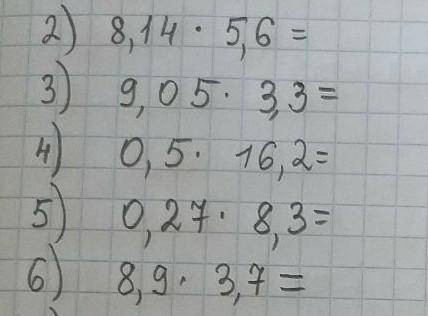 2) 8,14 · 5,6 =
3) 9,05 · 3,3 =
4) 0,5 · 16,2 =
5) 0,27 · 8,3 =
6) 8,9 · 3,7 =